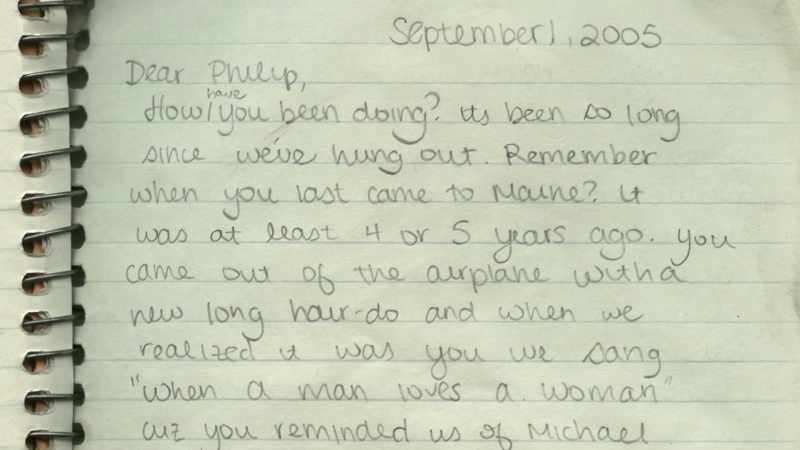 September 1, 2005
Dear Philip,
How have you been doing? its been so long
since we've hung out. Remember
when you last came to Maine? it
was at least 4 or 5 years ago. you
came out of the airplane with a
new long hair-do and when we
realized it was you we sang
"when a man loves a woman"
cuz you reminded us of Michael